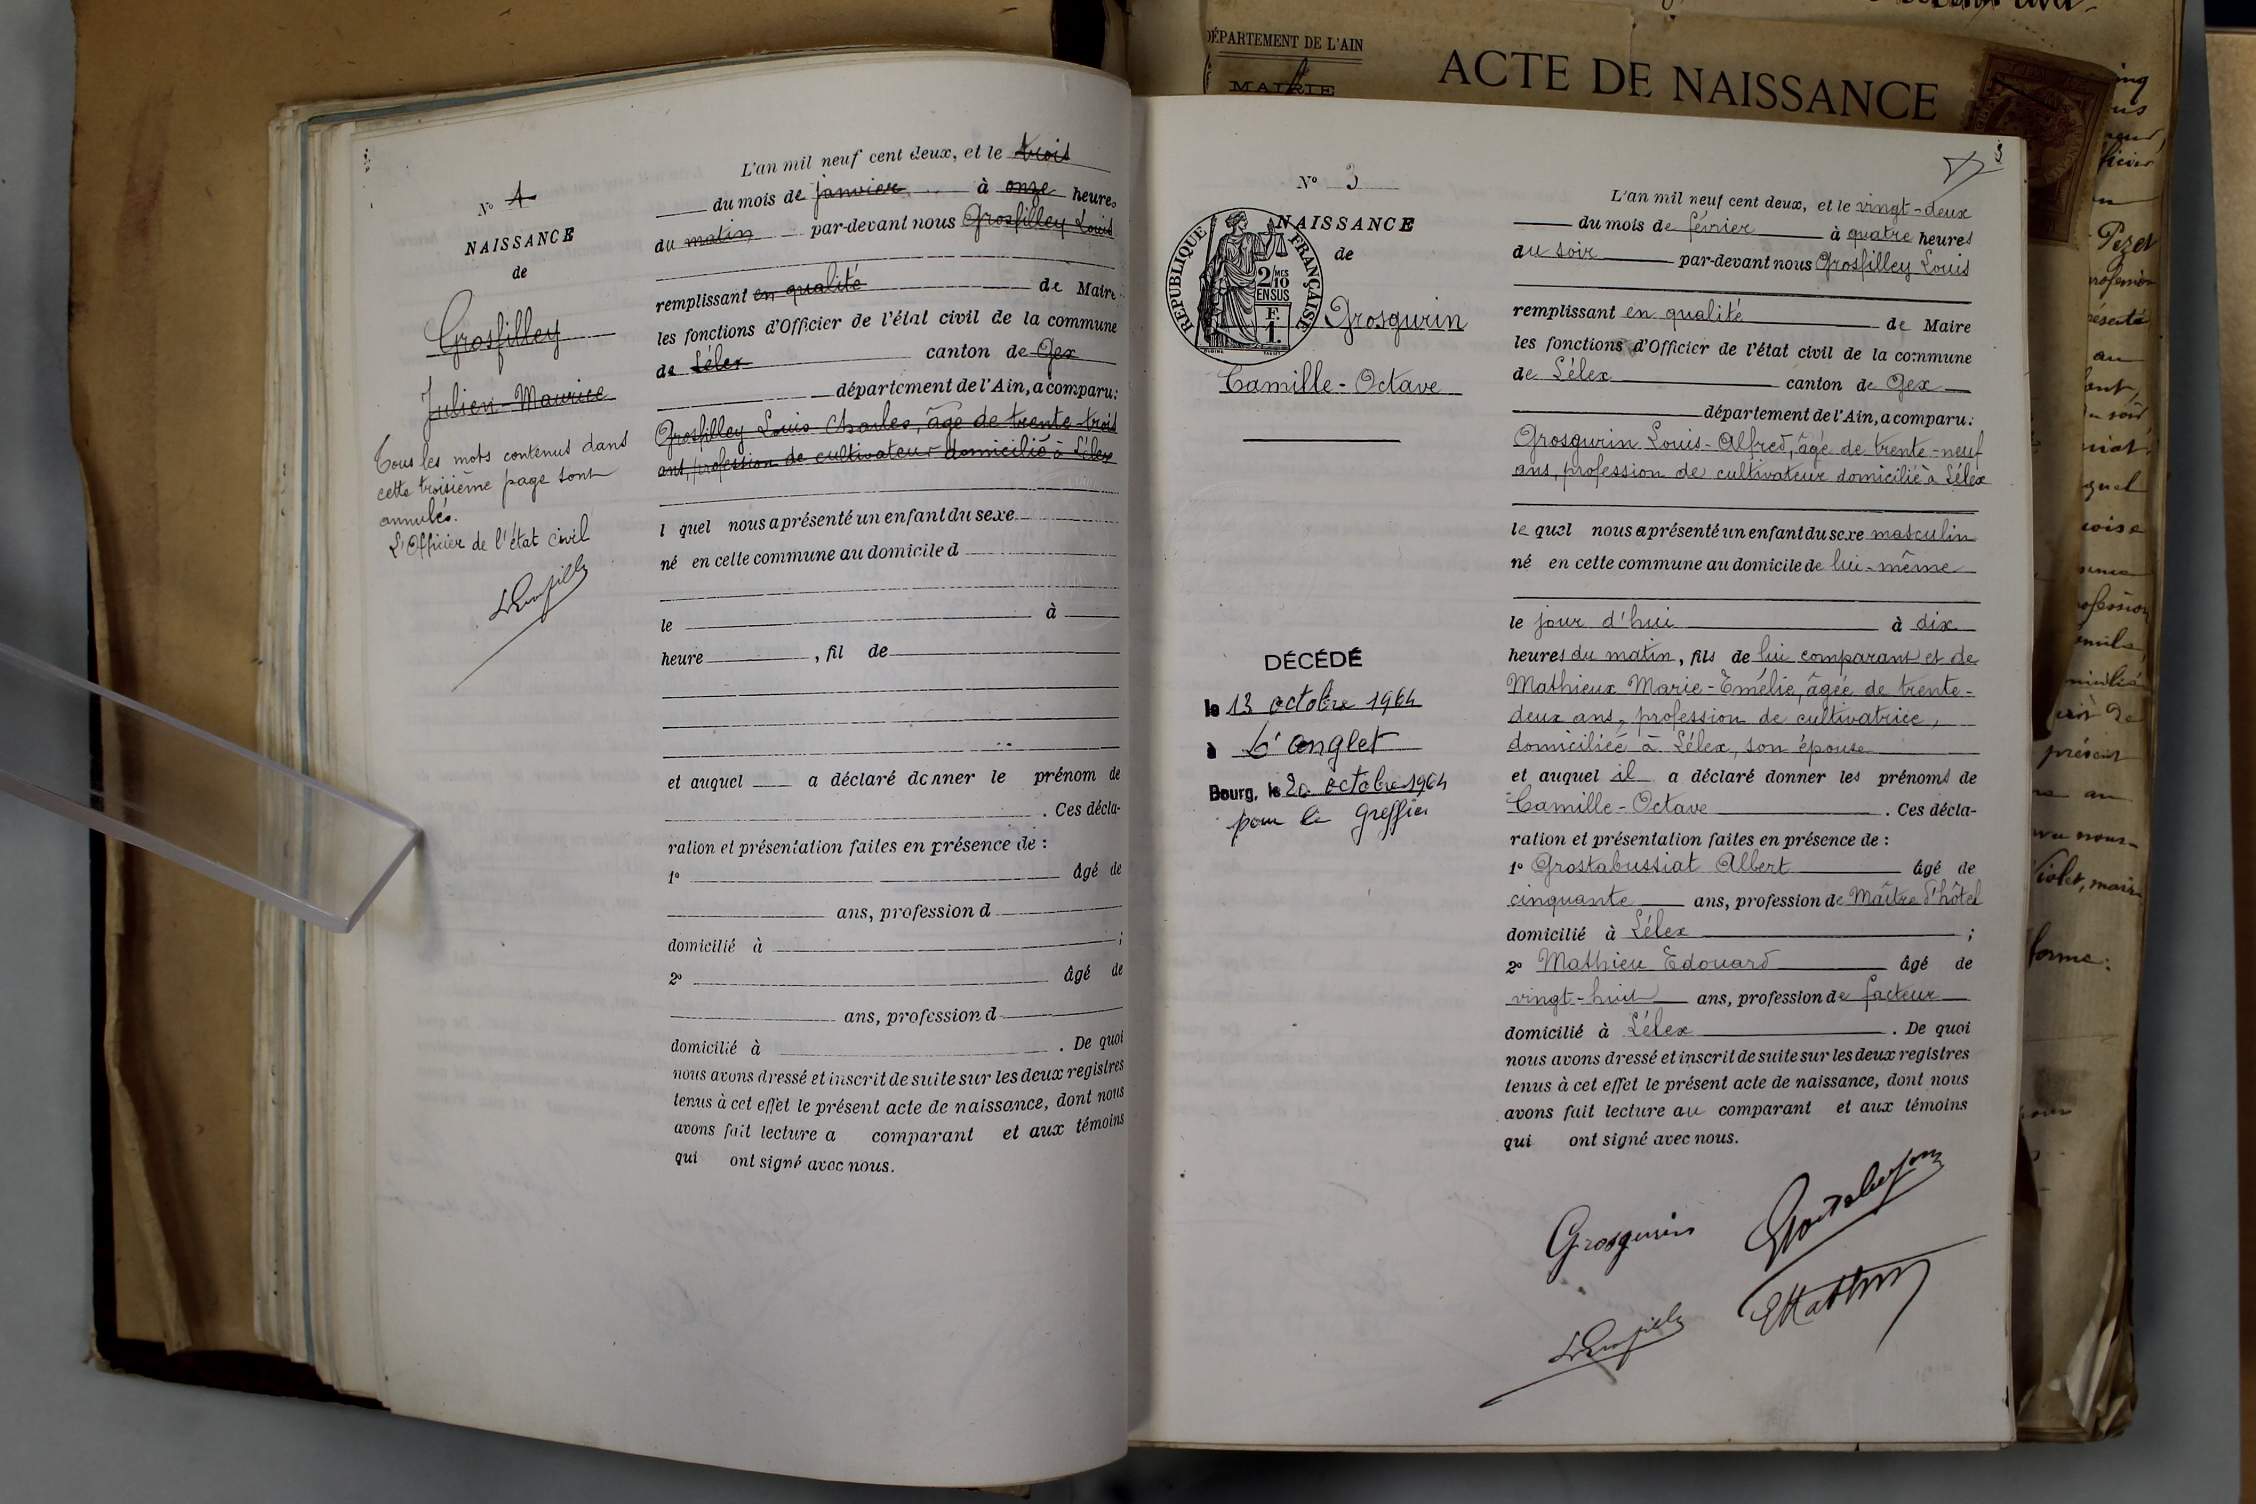 L'an mil neuf cent deux, et le trois
du mois de janvier à onze heures
du matin par-devant nous Grosfilley Louis
remplissant en qualité de Maire
les fonctions d'Officier de l'état civil de la commune
de Lélex canton de Gex
département de l'Ain, a comparu:
Grosfilley Louis-Charles, âgé de trente-trois
ans, profession de cultivateur domicilié à Lélex
l quel nous a présenté un enfant du sexe
né en cette commune au domicile d
le à
heure , fil de
et auquel a déclaré donner le prénom de
. Ces décla-
ration et présentation faites en présence de :
1° âgé de
ans, profession d
domicilié à ;
2° âgé de
ans, profession d
domicilié à . De quoi
nous avons dressé et inscrit de suite sur les deux registres
tenus à cet effet le présent acte de naissance, dont nous
avons fait lecture a comparant et aux témoins
qui ont signé avec nous.
N° 1
NAISSANCE
de
Grosfilley
Julien-Maurice
Tous les mots contenus dans
cette troisième page sont
annulés.
L'Officier de l'état civil
DÉPARTEMENT DE L'AIN
MAIRIE
ACTE DE NAISSANCE
3
N° 3
NAISSANCE
de
RÉPUBLIQUE FRANÇAISE
2/10 MES
EN SUS
F.
1.
Grosgurin
Camille-Octave
DÉCÉDÉ
le 13 octobre 1964
à L'anglet
Bourg, le 20 octobre 1964
pour le greffier
L'an mil neuf cent deux, et le vingt-deux
du mois de février à quatre heures
du soir par-devant nous Grosfilley Louis
remplissant en qualité de Maire
les fonctions d'Officier de l'état civil de la commune
de Lélex canton de Gex
département de l'Ain, a comparu:
Grosgurin Louis-Alfred, âgé de trente-neuf
ans, profession de cultivateur domicilié à Lélex
lequel nous a présenté un enfant du sexe masculin
né en cette commune au domicile de lui-même
le jour d'hui à dix
heures du matin, fils de lui comparant et de
Mathieux Marie-Emélie, âgée de trente-
deux ans, profession de cultivatrice,
domiciliée à Lélex, son épouse
et auquel il a déclaré donner les prénoms de
Camille-Octave . Ces décla-
ration et présentation faites en présence de :
1° Grostabussiat Albert âgé de
cinquante ans, profession de Maître d'hôtel
domicilié à Lélex ;
2° Mathieu Edouard âgé de
vingt-huit ans, profession de facteur
domicilié à Lélex . De quoi
nous avons dressé et inscrit de suite sur les deux registres
tenus à cet effet le présent acte de naissance, dont nous
avons fait lecture au comparant et aux témoins
qui ont signé avec nous.
Grosgurin
Pezet
présent
forme: